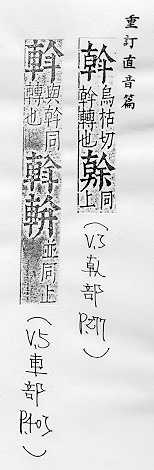 重訂直音篇
烏枯切 斡轉也 同上
(V.3 倝部 P.277)
與斡同 轉也 並同上
(V.5 車部 P.403)